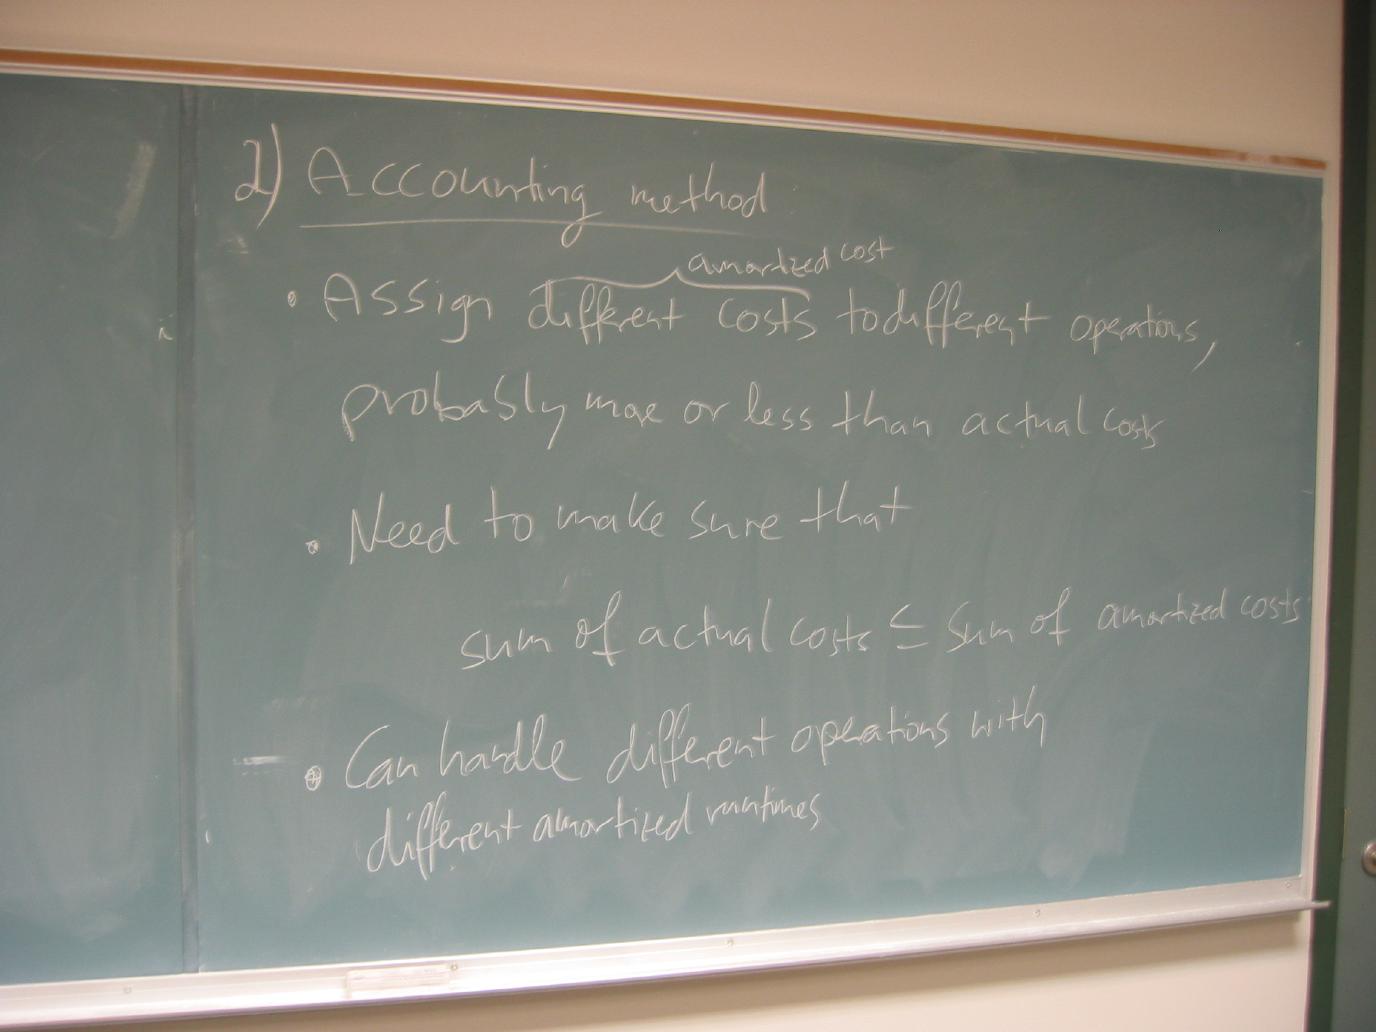 2) Accounting method
amortized cost
• Assign different costs to different operations,
probably more or less than actual costs
• Need to make sure that
sum of actual costs ≤ sum of amortized costs
• Can handle different operations with
different amortized runtimes